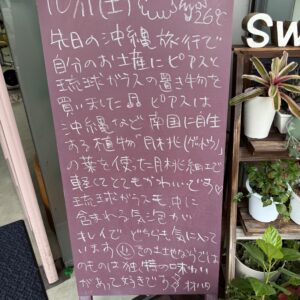 10/11(土) 26℃
先日の沖縄旅行で
自分のお土産にピアスと
琉球ガラスの置き物を
買いました♫ ピアスは
沖縄など南国に自生
ある植物"月桃(ゲットウ)"
の葉を使った月桃細工で
軽くてとてもかわいです♡
琉球ガラスも中に
含まれる気泡が
キレイで どちらも気に入って
います その土地ならでは
のものは独特の味わい
があって好きです
SW